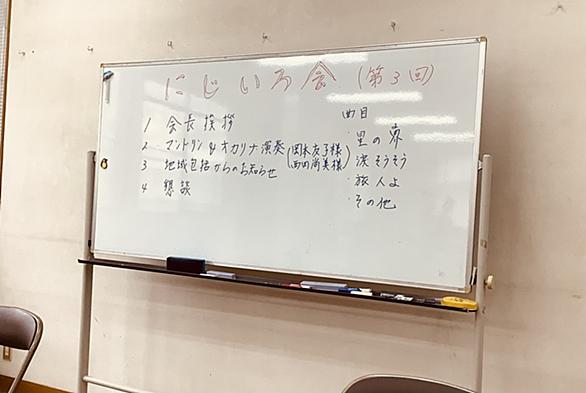 にじいろ会(第3回)
1 会長挨拶
2 マンドリン&オカリナ演奏(岡本友子様 西田尚美様)
3 地域包括からのお知らせ
4 懇談
曲目
・星の界
・浜そうそう
・旅人よ
・その他